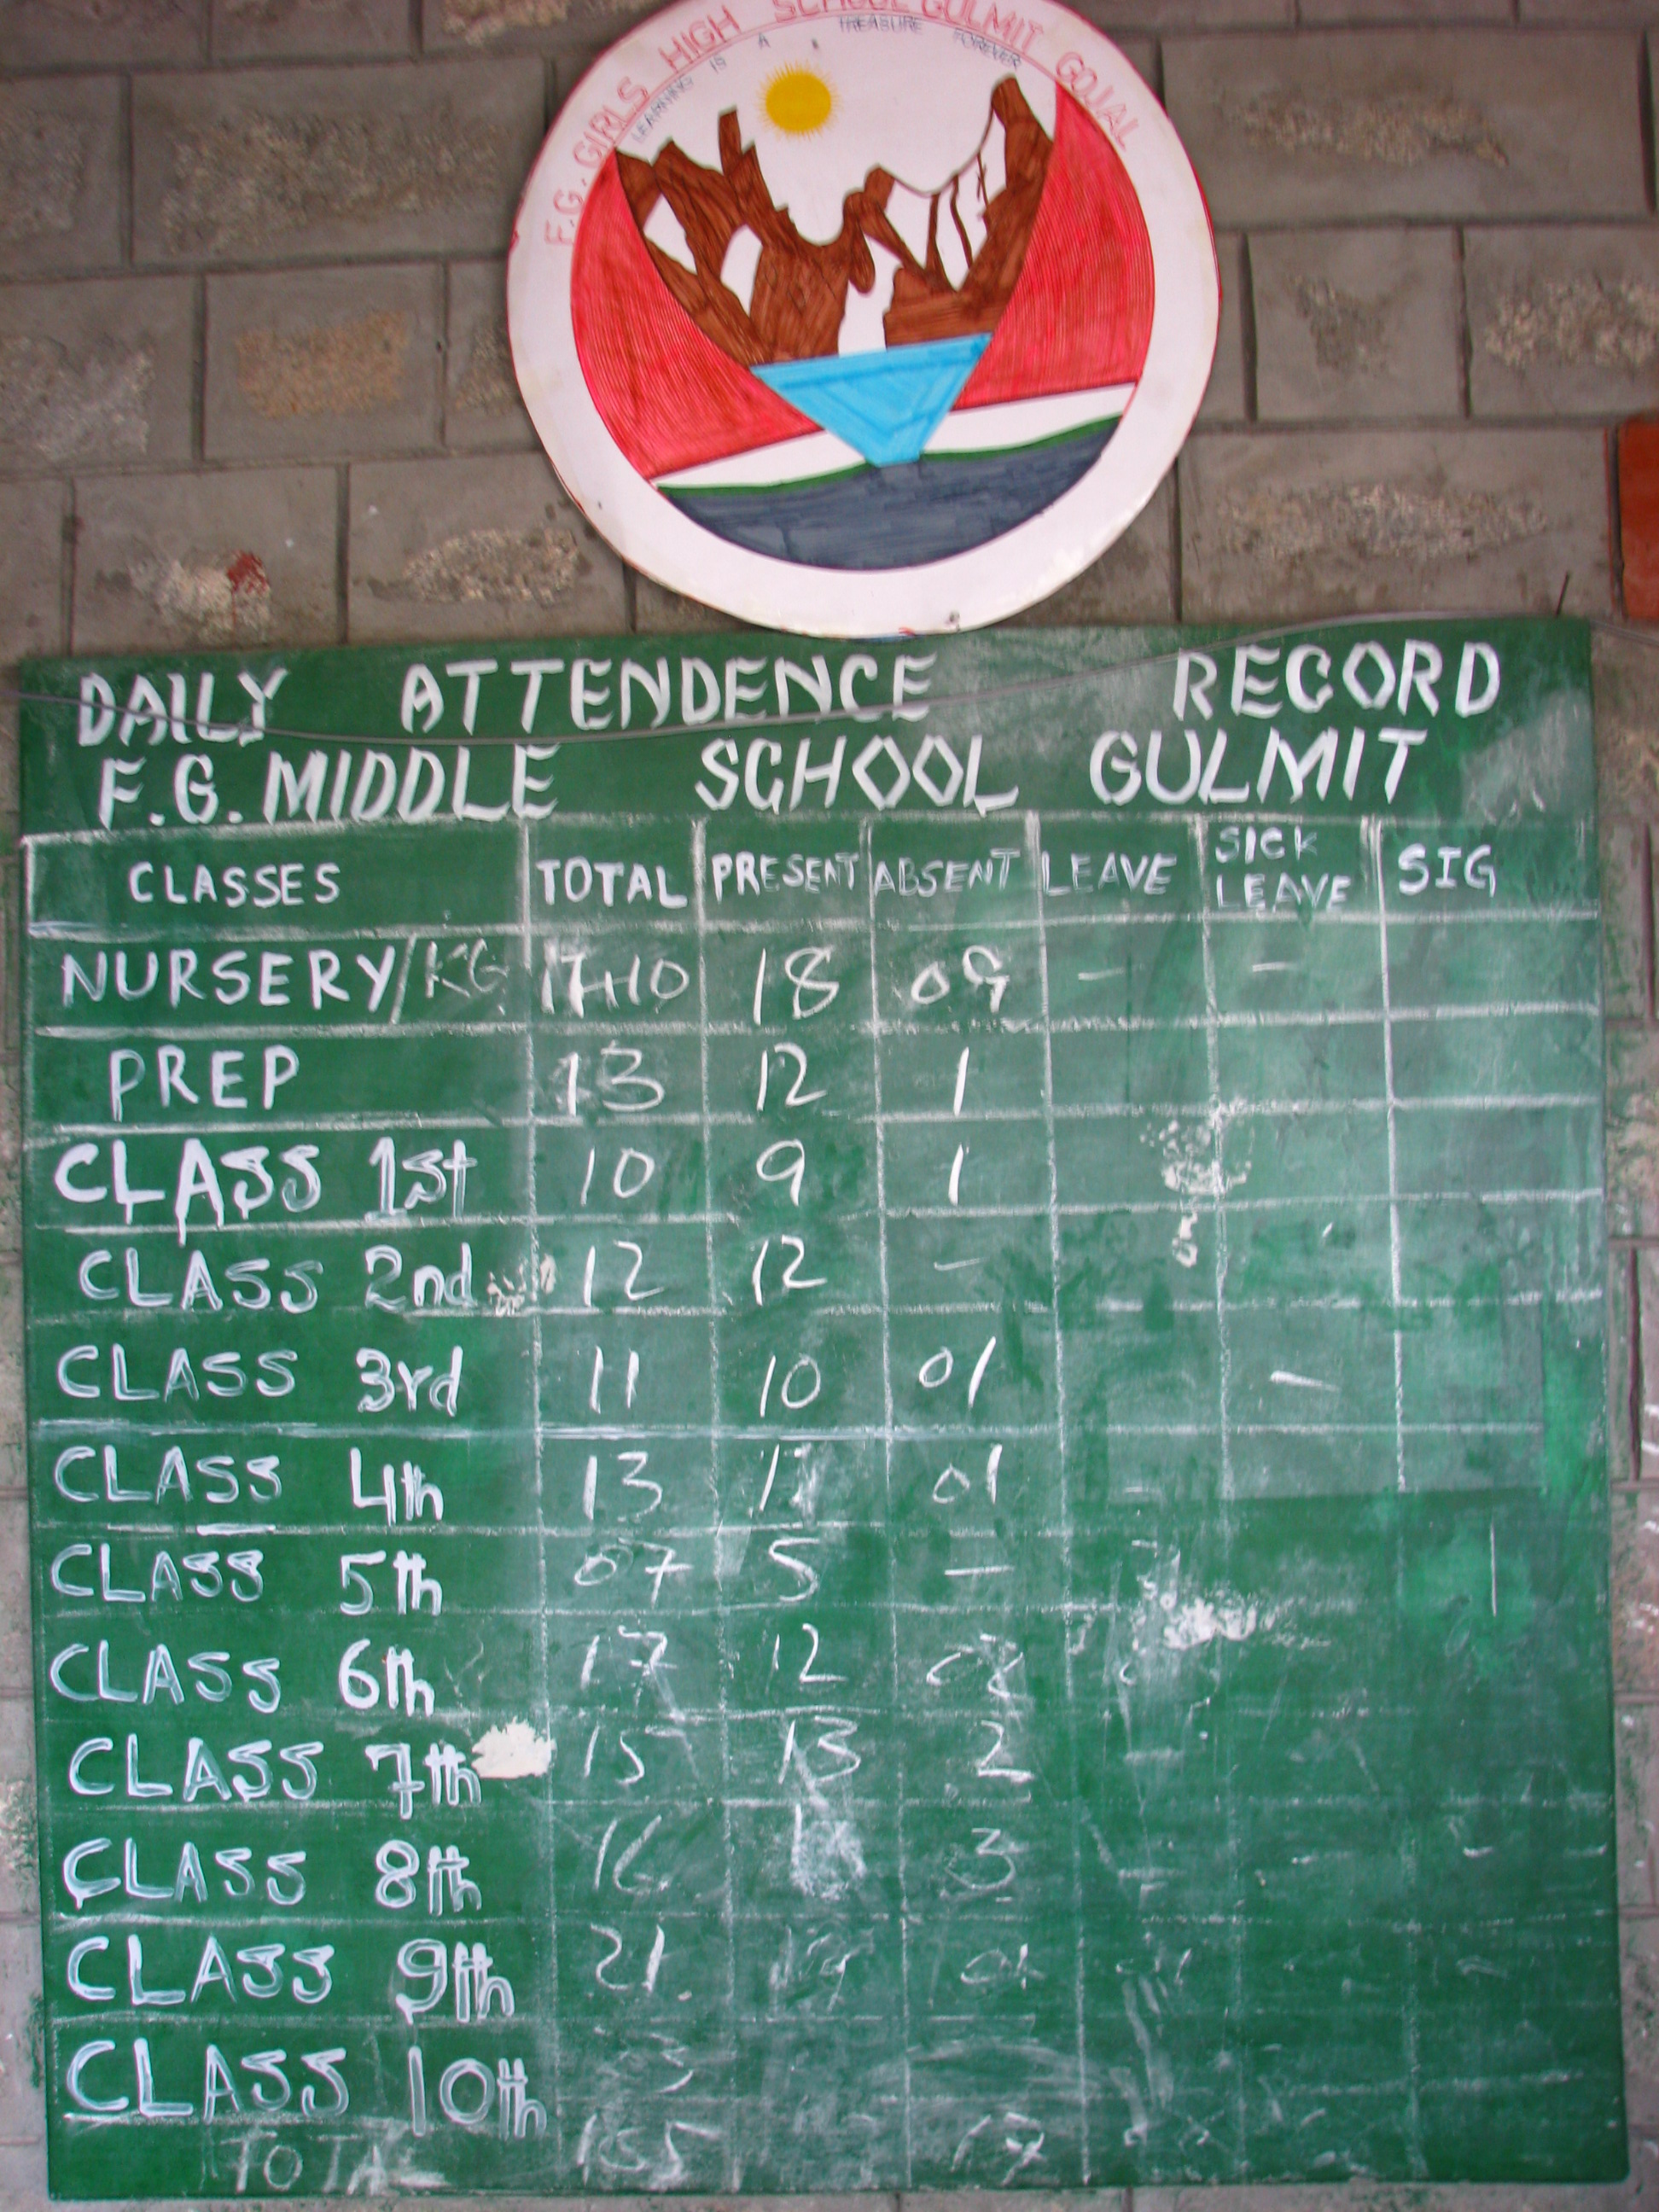 F.G. GIRLS HIGH SCHOOL GULMIT GOJAL
LEARNING IS A TREASURE FOREVER
DAILY ATTENDENCE RECORD
F.G. MIDDLE SCHOOL GULMIT
CLASSES TOTAL PRESENT ABSENT LEAVE SICK LEAVE SIG
NURSERY/KG 17+10 18 09 – –
PREP 13 12 1
CLASS 1st 10 9 1
CLASS 2nd 12 12 –
CLASS 3rd 11 10 01 –
CLASS 4th 13 01
CLASS 5th 07 5 –
CLASS 6th 17 12
CLASS 7th 15 13 2
CLASS 8th 16 3
CLASS 9th 21
CLASS 10th
TOTAL 155 17